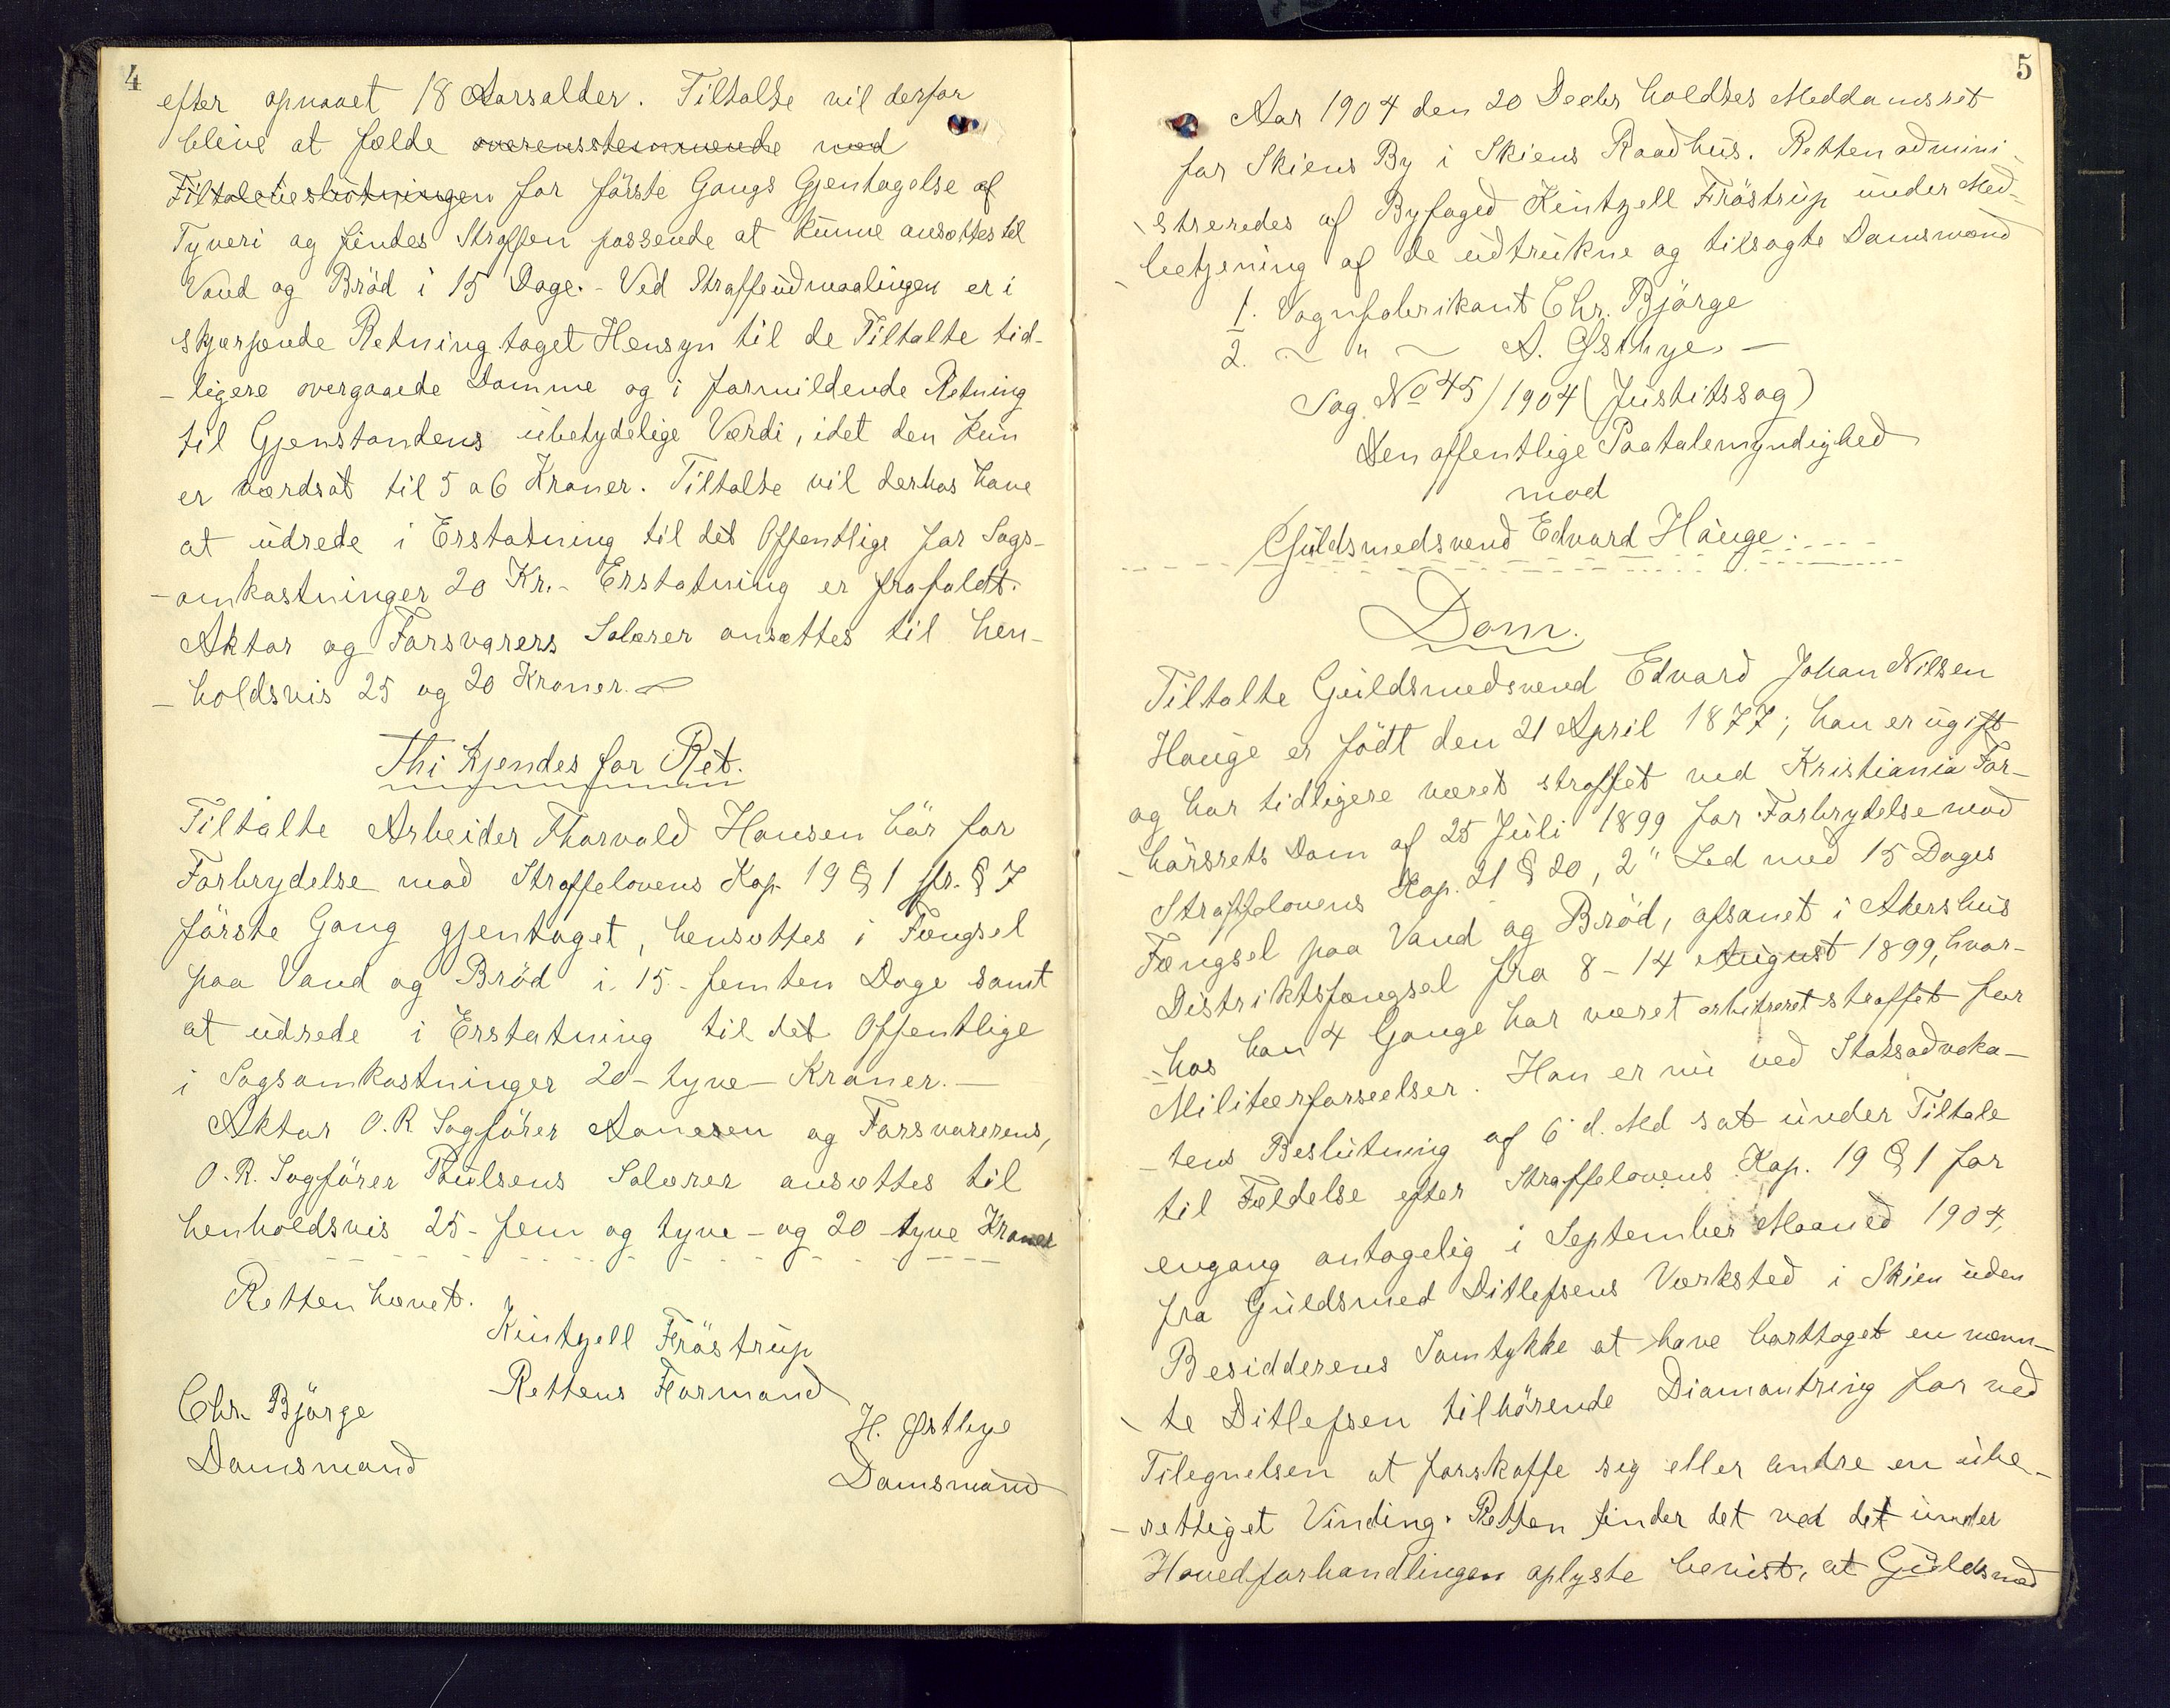 4
efter opnaaet 18 Aarsalder. Tiltalte vil derfor
blive at fælde overensstemmende med
Tiltalebeslutningen for förste Gangs Gjentagelse af
Tyveri og findes Straffen passende at kunne ansættes til
Vand og Bröd i 15 Dage. - Ved Straffeudmaalingen er i
skjærpende Retning taget Hensyn til de Tiltalte tid-
- ligere overgaaede Domme og i formildende Retning
til Gjenstandens ubetydelige Værdi, idet den kun
er værdsat til 5 a 6 Kroner. Tiltalte vil derhos have
at udrede i Erstatning til det Offentlige for Sags-
- omkostninger 20 Kr. - Erstatning er frafaldt.
Aktor og Forsvarers Salærer ansættes til hen-
- holdsvis 25 og 20 Kroner. -
Thi kjendes for Ret.
Tiltalte Arbeider Thorvald Hansen bör for
Forbrydelse mod Straffelovens Kap. 19 § 1 jfr. § 7
förste Gang gjentaget, hensættes i Fængsel
paa Vand og Bröd i 15 - femten Dage samt
at udrede i Erstatning til det Offentlige
i Sagsomkostninger 20 - tyve - Kroner. -
Aktor O. R Sagförer Aanesen og Forsvarerens,
O. R. Sagförer Poulsens Salærer ansættes til
henholdsvis 25 - fem og tyve - og 20 - tyve Kroner
Retten hævet.
Kintzell Fröstrup
Rettens Formand
Chr. Björge
Domsmand
H. Østbye
Domsmand
5
Aar 1904 den 20 Decbr holdtes Meddomsret
for Skiens By i Skiens Raadhus. Retten admini
- streredes af Byfoged Kintzell Fröstrup under Med-
- betjening af de udtrukne og tilsagte Domsmænd
1. Vognfabrikant Chr. Björge
2. ~ " ~ A. Østbye. -
Sag No 45/1904 (Justitssag)
Den offentlige Paatalemyndighed
mod
Guldsmedsvend Edvard Hauge.
Dom.
Tiltalte Guldsmedsvend Edvard Johan Nilsen
Hauge er födt den 21 April 1877; han er ugift
og har tidligere været straffet ved Kristiania For-
- hörsrets Dom af 25 Juli 1899 for Forbrydelse mod
Straffelovens Kap. 21 § 20, 2" Led med 15 Dages
Fængsel paa Vand og Bröd, afsonet i Akershus
Distriktsfængsel fra 8 - 14 August 1899, hvor-
- hos han 4 Gange har været arbitrært straffet for
Militærforseelser. Han er nu ved Statsadvoka-
- tens Beslutning af 6 d. Md sat under Tiltale
til Fældelse efter Straffelovens Kap. 19 § 1 for
engang antagelig i September Maaned 1904,
fra Guldsmed Ditlefsens Værksted i Skien uden
Besidderens Samtykke at have borttaget en nævn-
- te Ditlefsen tilhörende Diamantring for ved
Tilegnelsen at forskaffe sig eller andre en ube-
- rettiget Vinding. Retten finder det ved det under
Hovedforhandlingen oplyste bevist, at Guldsmed